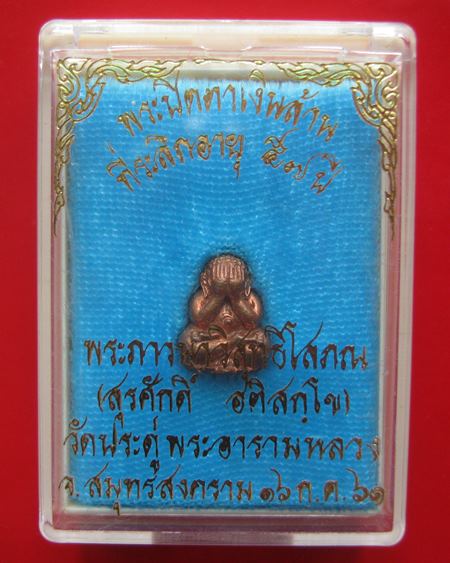 พระปิดตาเงินล้าน
ที่ระลึกอายุ ๕๗ ปี
พระภาวนาวิสุทธิโสภณ
(สุรศักดิ์ อติสกฺโข)
วัดประดู่พระอารามหลวง
จ.สมุทรสงคราม ๑๖ ก.ค. ๖๑